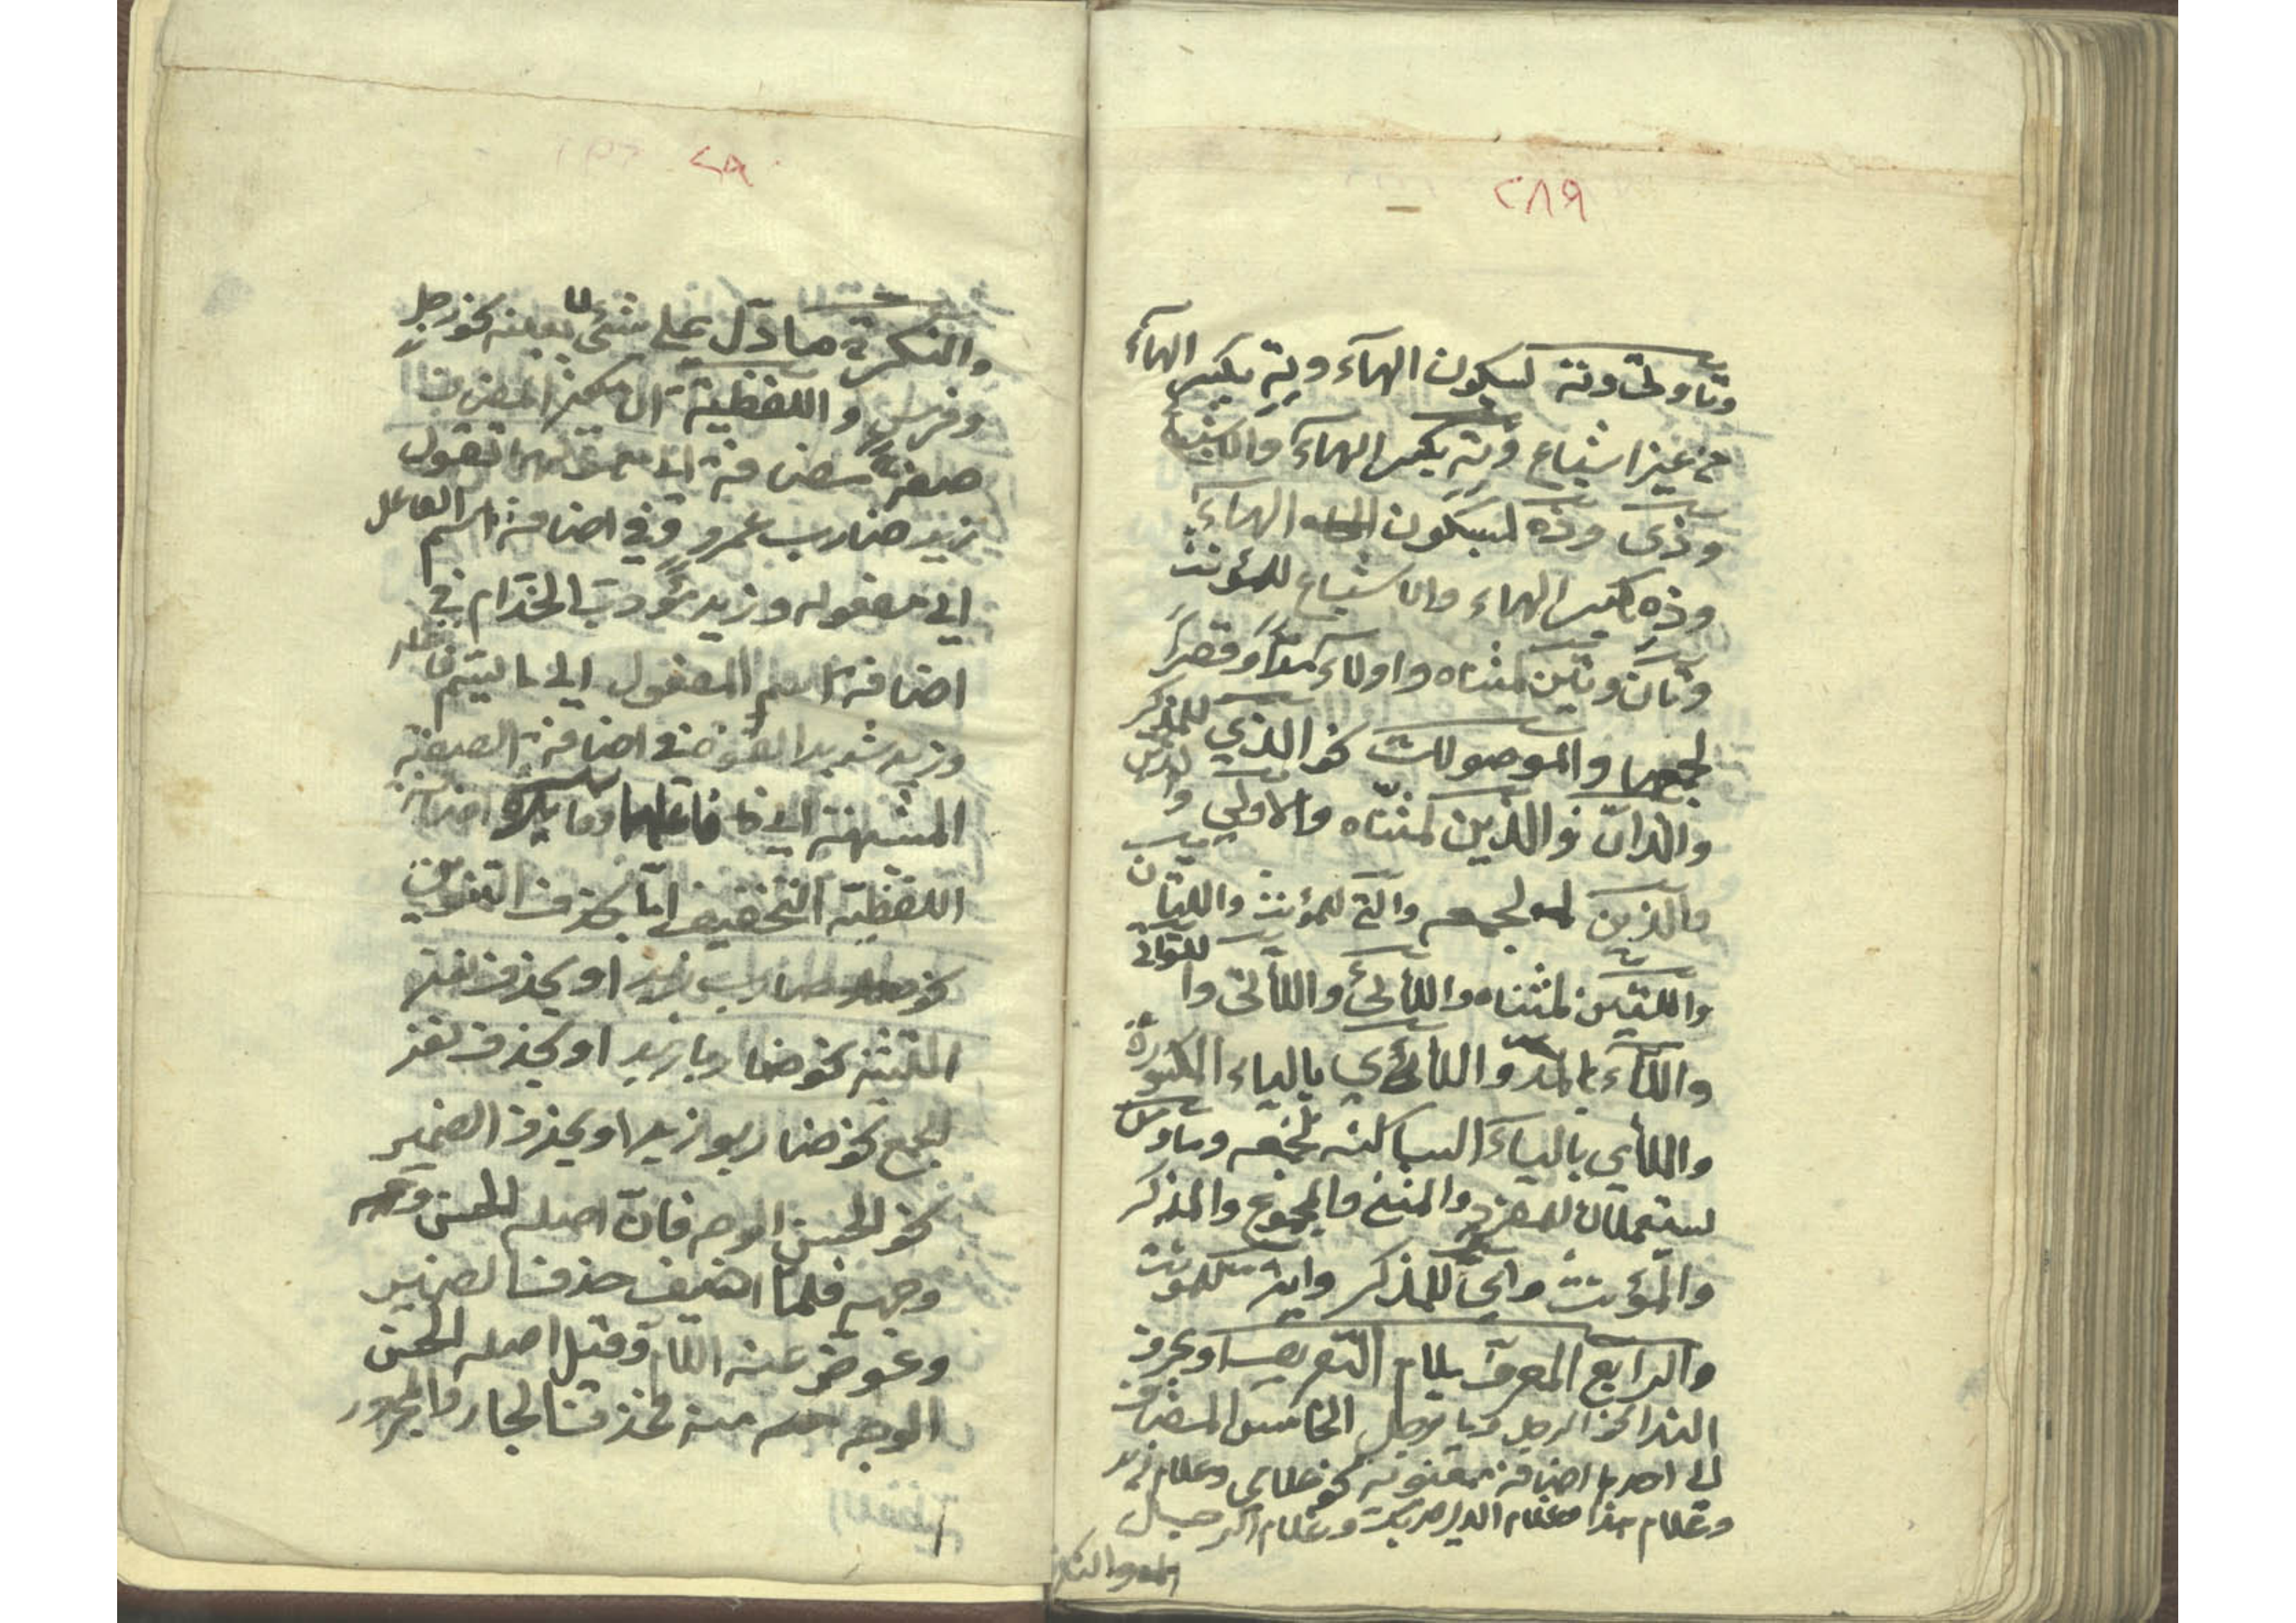 ٢٨٩
وتا وتي وته لسكون الهآء وته بكسر الهآء
من غير اشباع وته بكسر الهآء والاشباع
وذي وذه لسكون الهآء
وذه بكسر الهاء والاشباع للمؤنث
وتان وتين لمثناه واولاء مدّاً وقصراً
لجمعهما والموصولات نحو الذي للمذكر
واللذان واللذين لمثنّاه والاولى والذين
والذين لجمعه والتي للمؤنث واللتان
واللتين لمثناه واللائي واللاتي واللواتي
واللاء بالمدّ واللائي بالياء المكسورة
واللاي بالياء الساكنه لجمعه وما ومن
يستعملان للمفرد والمثنى والمجموع والمذكر
والمؤنث واي للمذكر واية للمؤنث
والرابع المعرف بلام التعريف او بحرف
الندا نحو الرجل ويا رجل الخامس المضاف
الى احدها اضافة معنوية نحو غلامي وغلام زيد
وغلام هذا وغلام الدار
والنكرة
٢٩٠
والنكرة ما دلّ على شئ لا بعينه نحو رجل
وفرس واللفظية ان يكون المضاف
صفة مضافة الى معمولها تقول
زيد ضارب عمرو في اضافة اسم الفاعل
الى مفعوله وزيد مؤدب الخدام في
اضافة اسم المفعول الى ما ليتم فاعله
وزيد شديد القوة في اضافة الصفة
المشبهة الى فاعلها وفائدة اضافة
اللفظية التخفيف امّا بحذف التنوين
نحو ضارب زيد او بحذف نون
التثنية نحو ضاربا زيد او بحذف نون
الجمع نحو ضاربو زيد او بحذف الضمير
نحو الحسن الوجه فانّ اصله الحسن
وجهه فلمّا اضيف حذف الضمير
وعوض عنه اللام وقيل اصله الحسن
الوجه منه فحذف الجار والمجرور